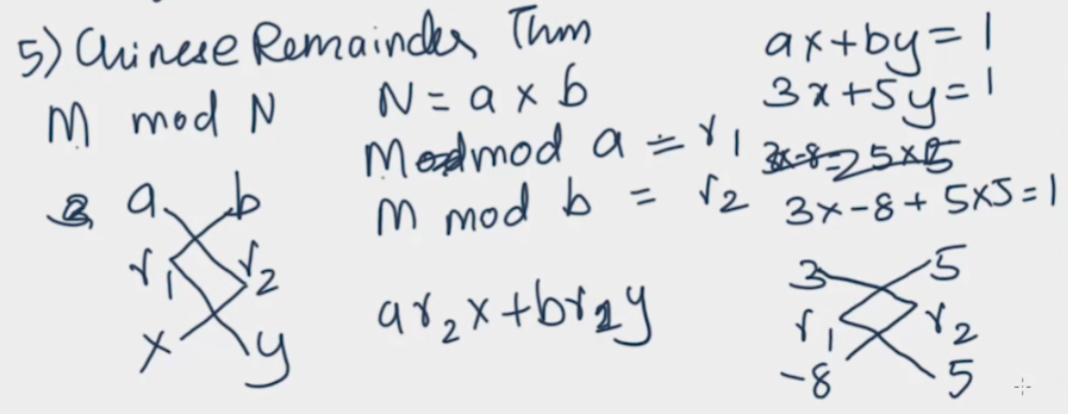 5) Chinese Remainder Thm
M mod N
N = a x b
M mod a = r1
M mod b = r2
a b
r1 r2
x y
ar2x+br1y
ax+by=1
3x+5y=1
3x-8+5x5=1
3 5
r1 r2
-8 5